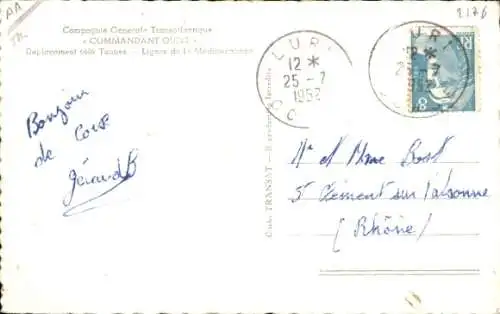 PA
2176
Compagnie Generale Transatlantique
« COMMANDANT QUERE »
Déplacement 4400 Tonnes - Lignes de la Méditerranée
LURI
12 *
25 - 7
1952
LURI
12 *
1952
8
Bonjour
de Corse
Gérard
Mr et Mme Bost
St Clément sur Valsonne
(Rhône)
TRANSAT